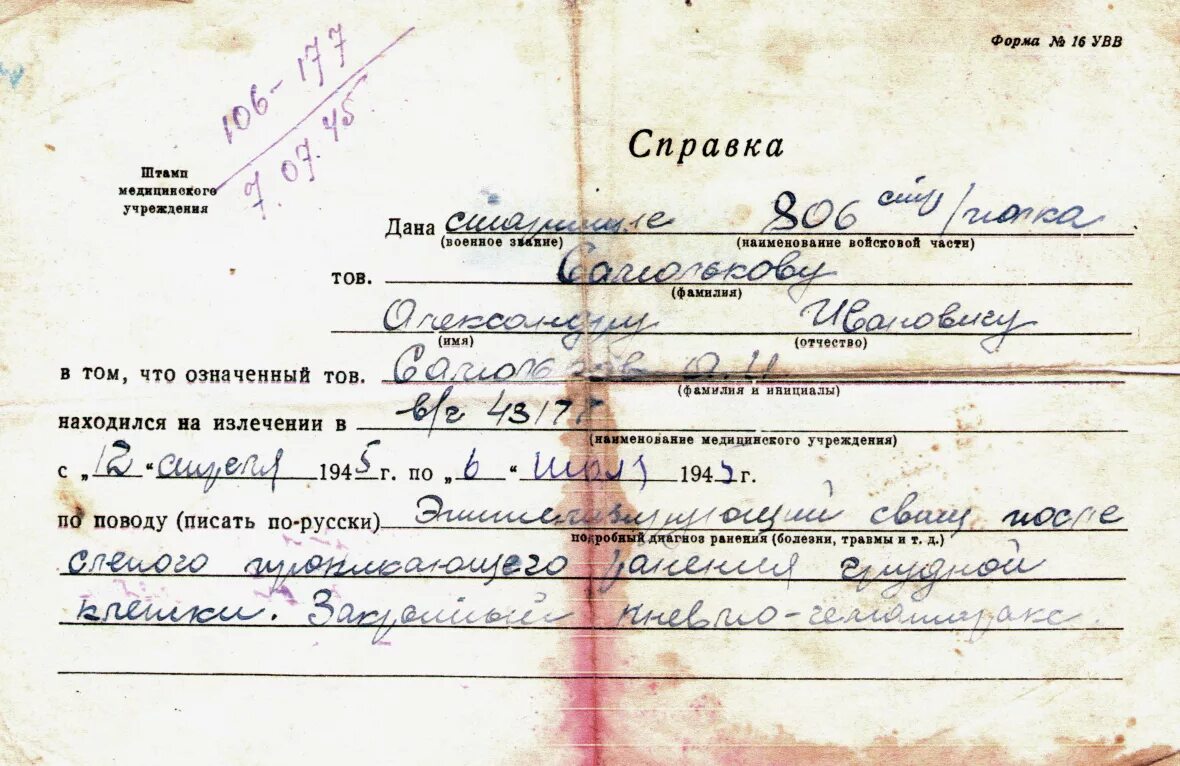 Форма № 16 УВВ
106-177
7.07.45.
Справка
Штамп
медицинского
учреждения
Дана старшине 806 стр/полка
(военное звание) (наименование войсковой части)
тов. Самолькову
(фамилия)
Александру Ивановичу
(имя) (отчество)
в том, что означенный тов. А.И.
(фамилия и инициалы)
находился на излечении в в/ч
(наименование медицинского учреждения)
с „12“ апреля 1945 г. по „6“ июля 1945 г.
по поводу (писать по-русски) Эпителизирующий свищ после
подробный диагноз ранения (болезни, травмы и т. д.)
слепого проникающего ранения грудной
клетки. Закрытый пневмо-гемоторакс.